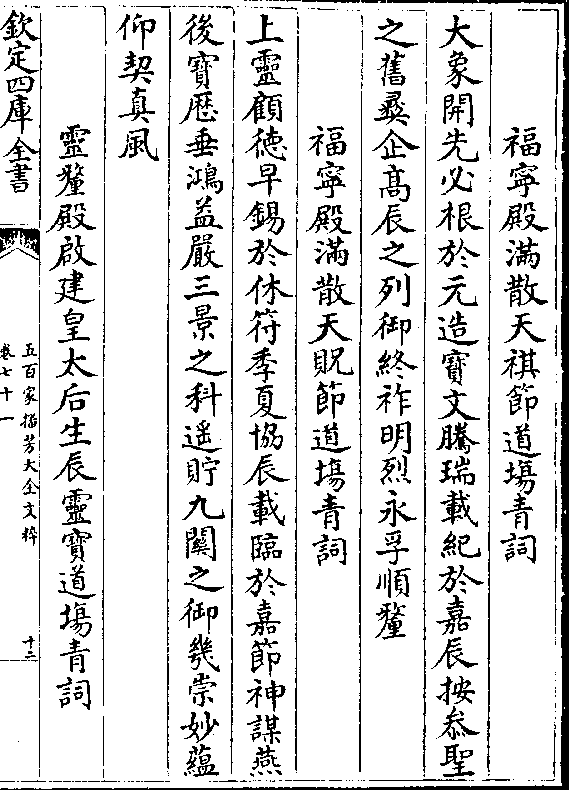 福寧殿滿散天祺節道場青詞
大象開先必根於元造寶文騰瑞載紀於嘉辰按叅聖
之舊彛企髙辰之列御終祚明烈永孚順釐
福寧殿滿散天貺節道場青詞
上靈顧德早錫於休符季夏協辰載臨於嘉節神謀燕
後寶厯垂鴻益嚴三景之科遥貯九闗之御幾崇妙蘊
仰契真風
靈釐殿啟建皇太后生辰靈寶道場青詞
欽定四庫全書
五百家播芳大全文粹
卷七十一
十三